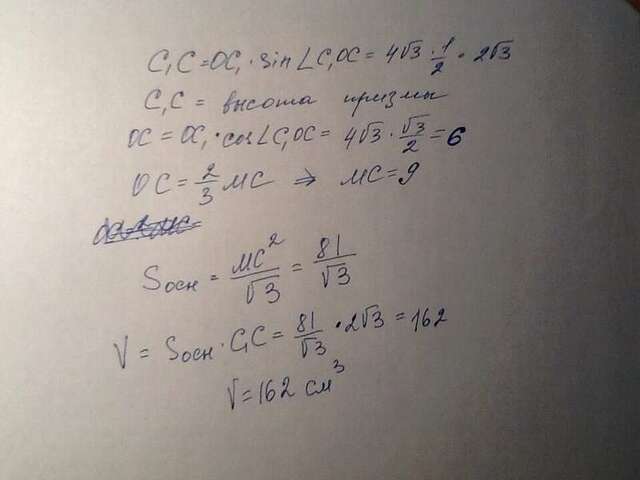 C₁C = OC₁ · sin∠C₁OC = 4√3 · 1/2 = 2√3
C₁C = высота призмы
OC = OC₁ · cos∠C₁OC = 4√3 · √3/2 = 6
OC = 2/3 MC ⇒ MC = 9
Sосн = MC²/√3 = 81/√3
V = Sосн · C₁C = 81/√3 · 2√3 = 162
V = 162 см³